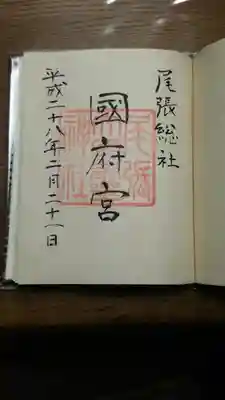 尾張総社
國府宮
平成二十八年二月二十一日